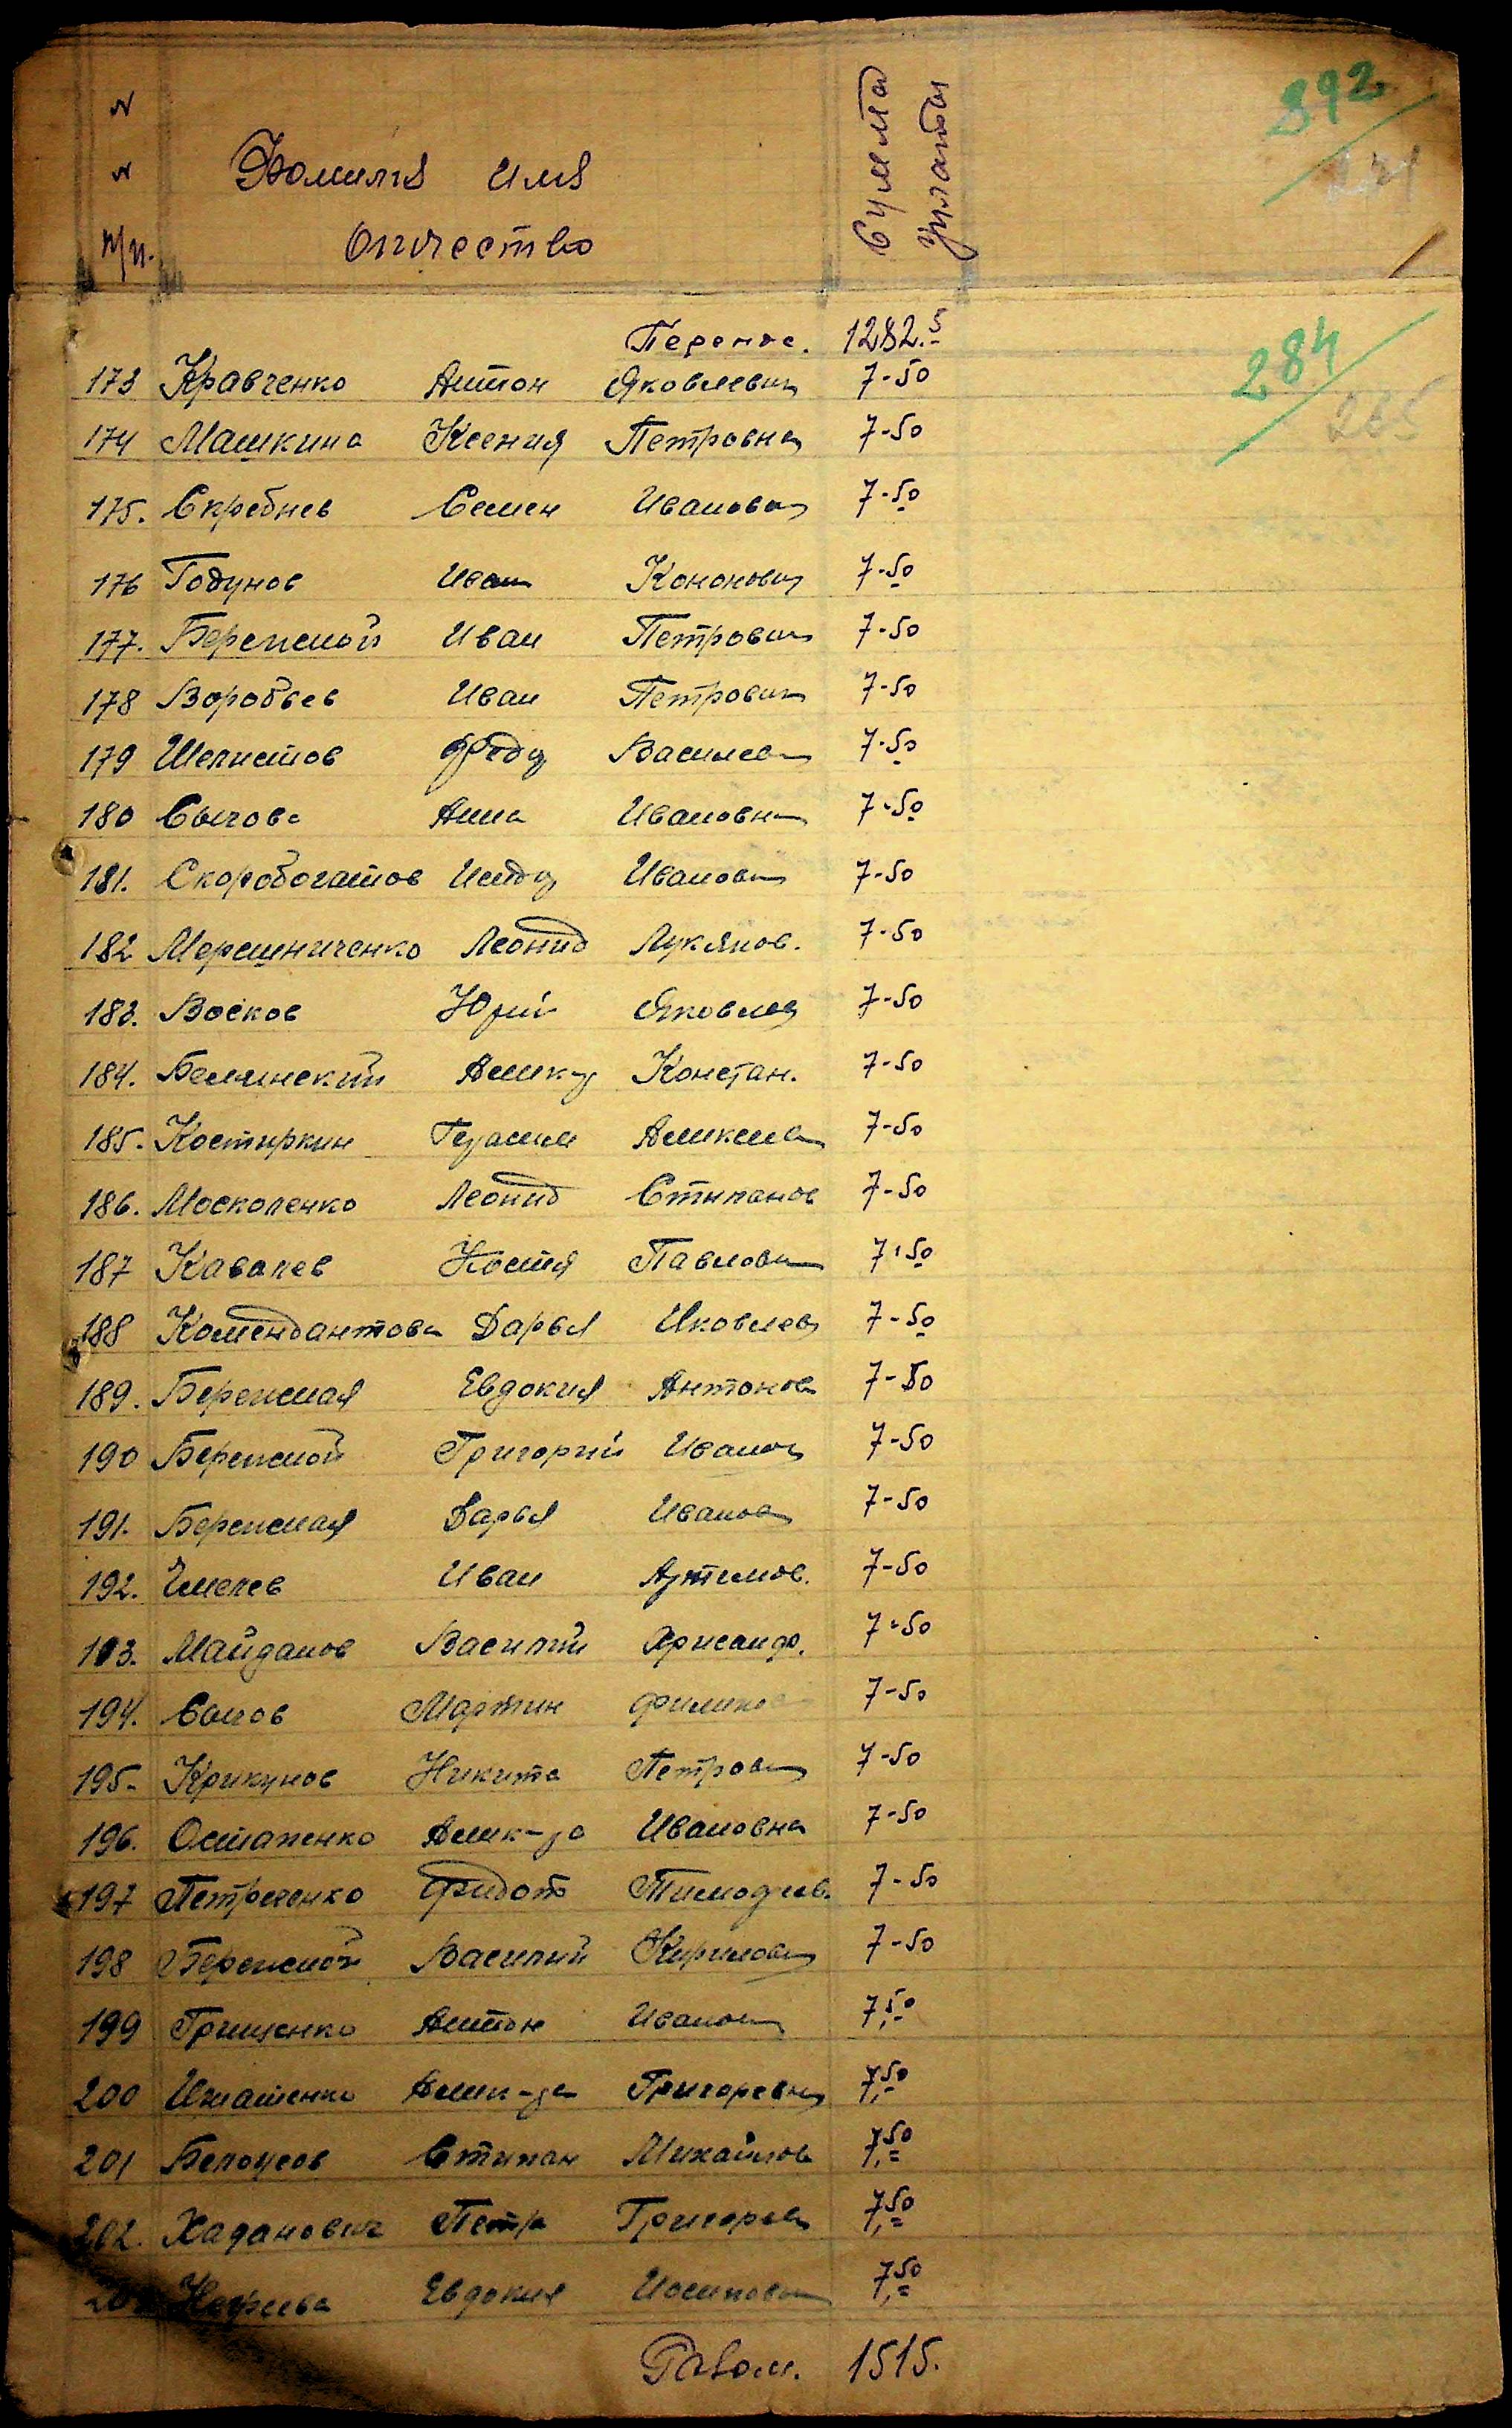 892
N
N
п/п.
Фомилия имя
отчество
Сумма
уплаты
Перенос. 1282.5
284
265
173 Кравченко Антон Яковлевич 7-50
174 Машкина Ксения Петровна 7-50
175. Скребнев Семен Иванович 7-50
176 Годунов Иван Кононович 7-50
177. Бережной Иван Петрович 7-50
178 Воробьев Иван Петрович 7-50
179 Шелистов Федор Василев 7-50
180 Сычова Анна Ивановна 7-50
181. Скоробогатов Иван 7-50
182 Мерешниченко Леонид Лукянов. 7-50
183. Восков Юрий Яковлев 7-50
184. Белянский Алик-р Констан. 7-50
185. Костиркин Герасим Аликсеев 7-50
186. Москоленко Леонид Стипанов 7-50
187 Кавалев Костя Павлович 7-50
188 Комендантова Дарья Яковлев 7-50
189. Бережная Евдокия Антонов 7-50
190 Бережной Григорий Иванов 7-50
191. Бережная Дарья Иванов 7-50
192. Чмелев Иван Артимов. 7-50
193. Майданов Василий Хрисанф. 7-50
194. Сычов Мартин Филипов 7-50
195. Крикунов Никита Петрович 7-50
196. Остапенко Алик-ра Ивановна 7-50
197 Петренко Федот Тимофеев. 7-50
198 Бережной Василий Кирилов 7-50
199 Грищенко Антон Иванов 7,50
200 Игнатенко Алик-ра Григоревна 7,50
201 Белоусов Стипан Михайлов 7,50
202. Хаданович Петр Григорев 7,50
Евдокия Иосиповна 7,50
Равом. 1515.